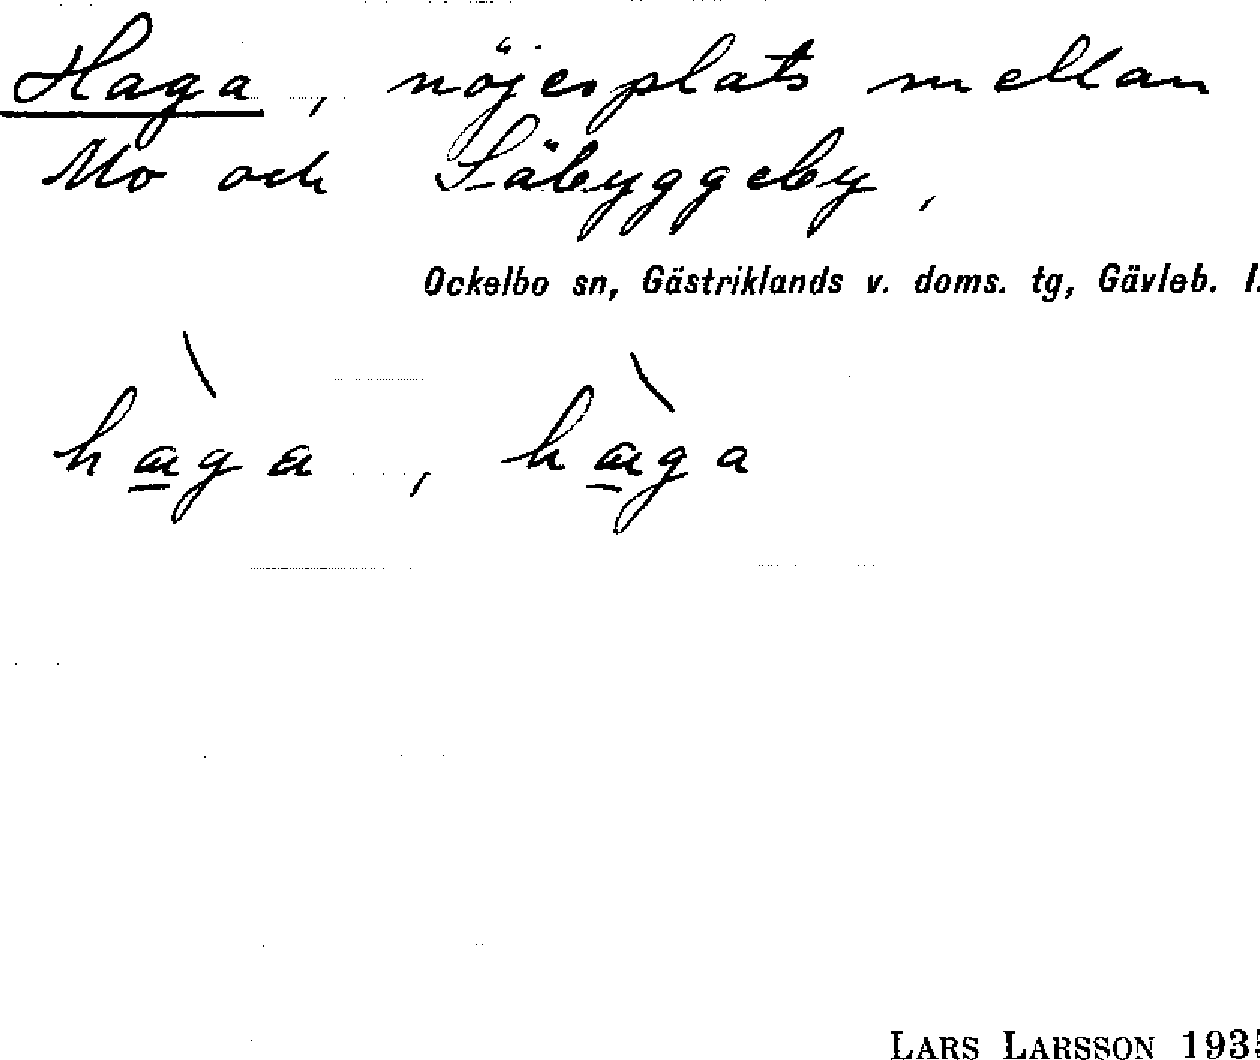 Haga, nöjesplats mellan
Mo och Säbyggeby,
Ockelbo sn, Gästriklands v. doms. tg, Gävleb. l.
hàga, hàga
LARS LARSSON 193